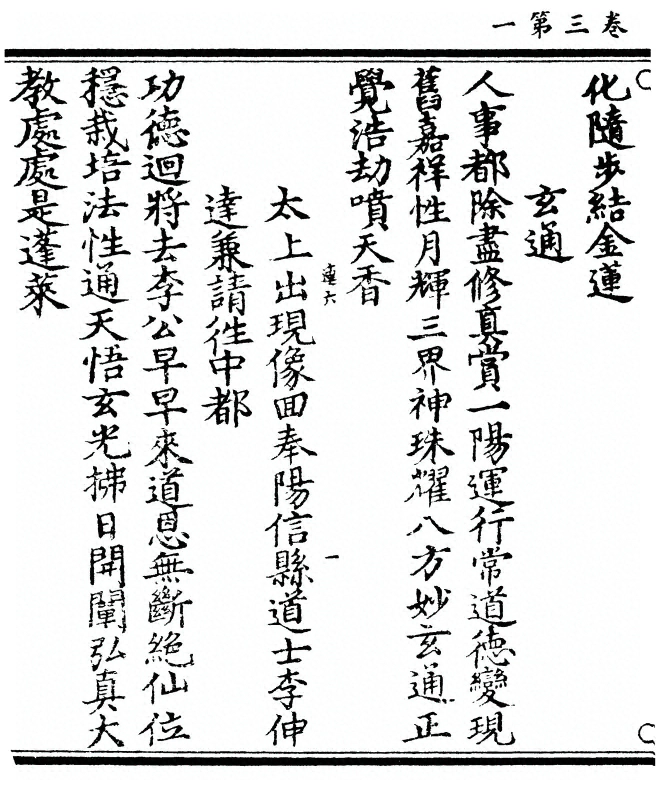 卷三第一
化隨步結金蓮
玄通
人事都除盡修真賞一陽運行常道德變現
舊嘉祥性月輝三界神珠耀八方妙玄通正
覺浩劫噴天香
連六
一
太上出現像回奉陽信縣道士李伸
達兼請徃中都
功德迴將去李公早早來道恩無斷絕仙位
穩栽培法性通天悟玄光拂日開闡弘真大
教處處是蓬萊